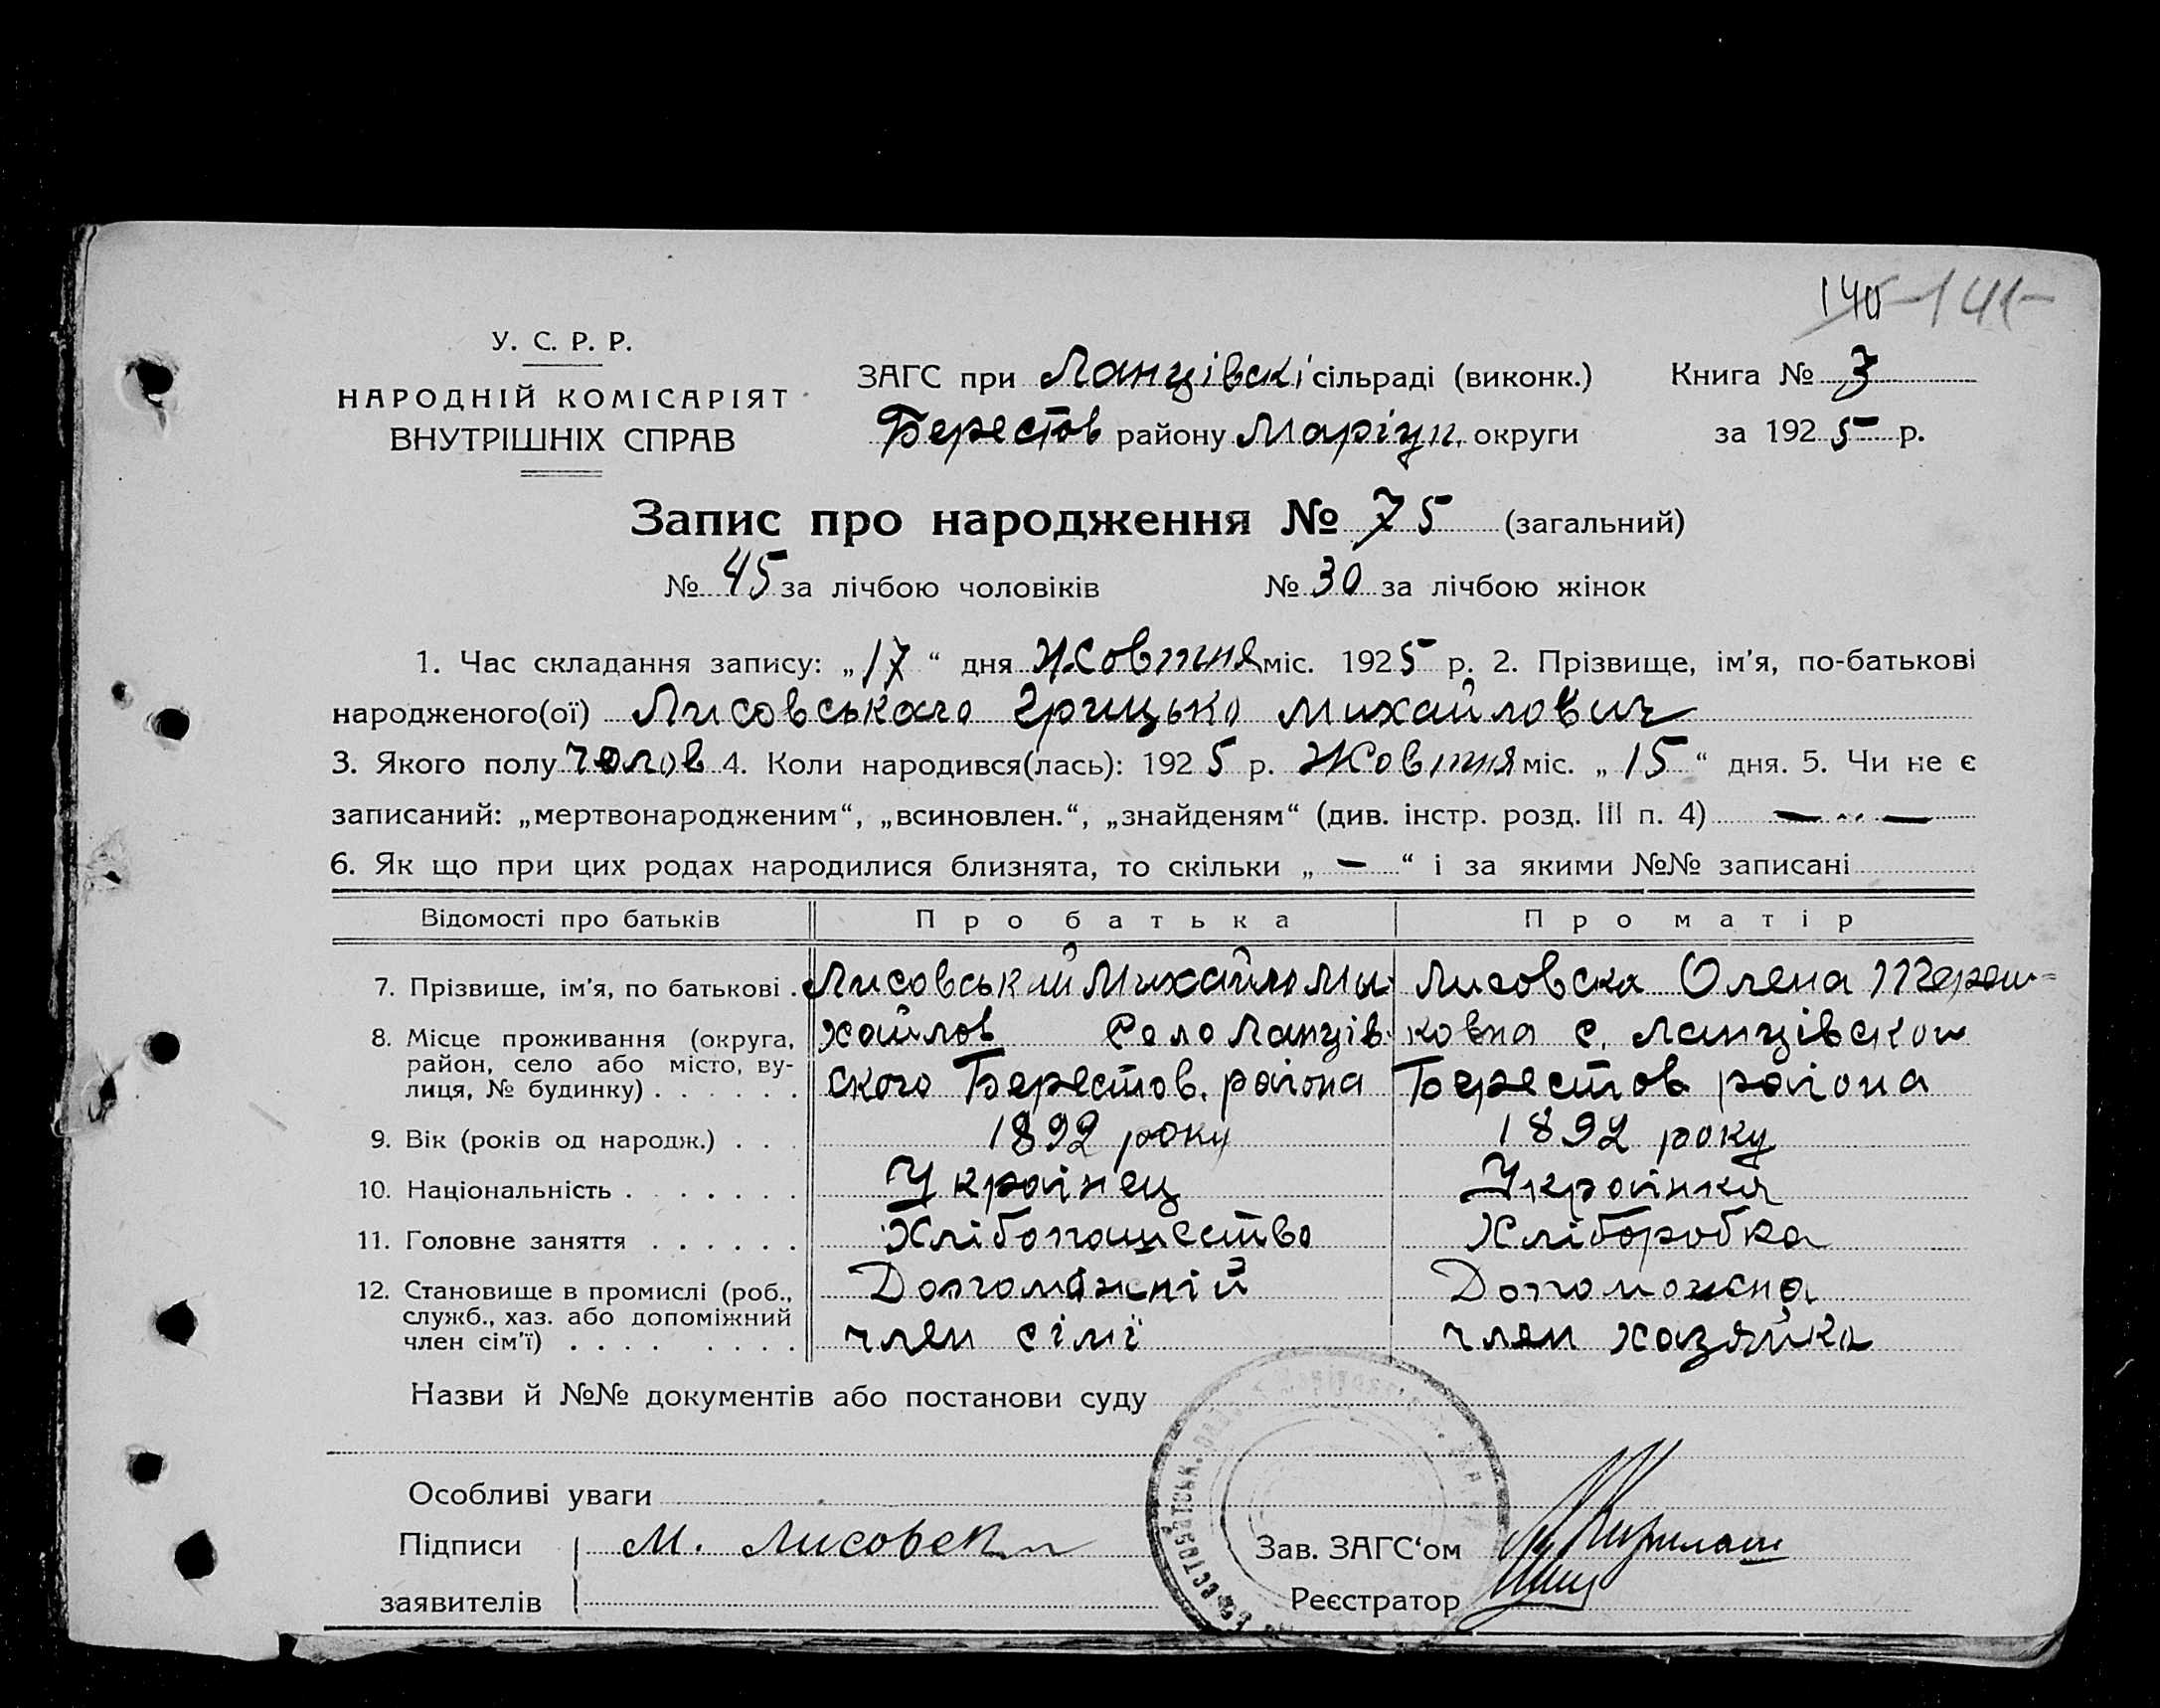 140 141
У. С. Р. Р.
НАРОДНІЙ КОМІСАРІЯТ
ВНУТРІШНІХ СПРАВ
ЗАГС при Ланцівскі сільраді (виконк.)
Берестов району Маріуп. округи
Книга № 3
за 1925 р.
Запис про народження № 75 (загальний)
№ 45 за лічбою чоловіків № 30 за лічбою жінок
1. Час складання запису: „17“ дня Жовтня міс. 1925 р. 2. Прізвище, ім'я, по-батькові
народженого(ої) Лисовськаго Грицько Михайлович
3. Якого полу чолов 4. Коли народився(лась): 1925 р. Жовтня міс. „15“ дня. 5. Чи не є
записаний: „мертвонародженим“, „всиновлен.“, „знайденям“ (див. інстр. розд. III п. 4) —
6. Як що при цих родах народилися близнята, то скільки „—“ і за якими №№ записані
Відомості про батьків Про батька Про матір
7. Прізвище, ім'я, по батькові . Лисовський Михайло Ми- Лисовска Олена Тереш=
8. Місце проживання (округа, хайлов Село Ланців- ковна с. Ланцівской
район, село або місто, ву-
лиця, № будинку) . . . . . . ского Берестов. раіона Берестов раіона
9. Вік (років од народж.) . . . 1892 року 1892 року
10. Національність . . . . . . . Украінец Украінка
11. Головне заняття . . . . . . Хлібопашество Хліборобка
12. Становище в промислі (роб., Допоміжній Допоможна
служб., хаз. або допоміжний
член сім'ї) . . . . . . . . член сімї член хазяйка
Назви й №№ документів або постанови суду
Особливі уваги
Підписи М. Лисовск
заявителів
Зав. ЗАГС'ом
Реєстратор